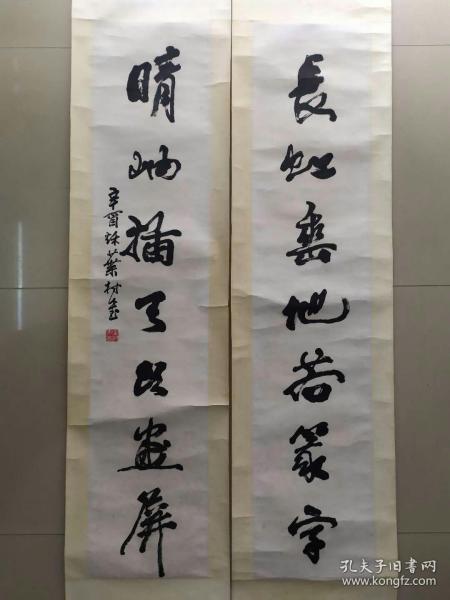 長虹垂地若篆字
晴岫插天如畫屏
辛酉秌葉村
孔夫子旧书网
www.kongfz.com